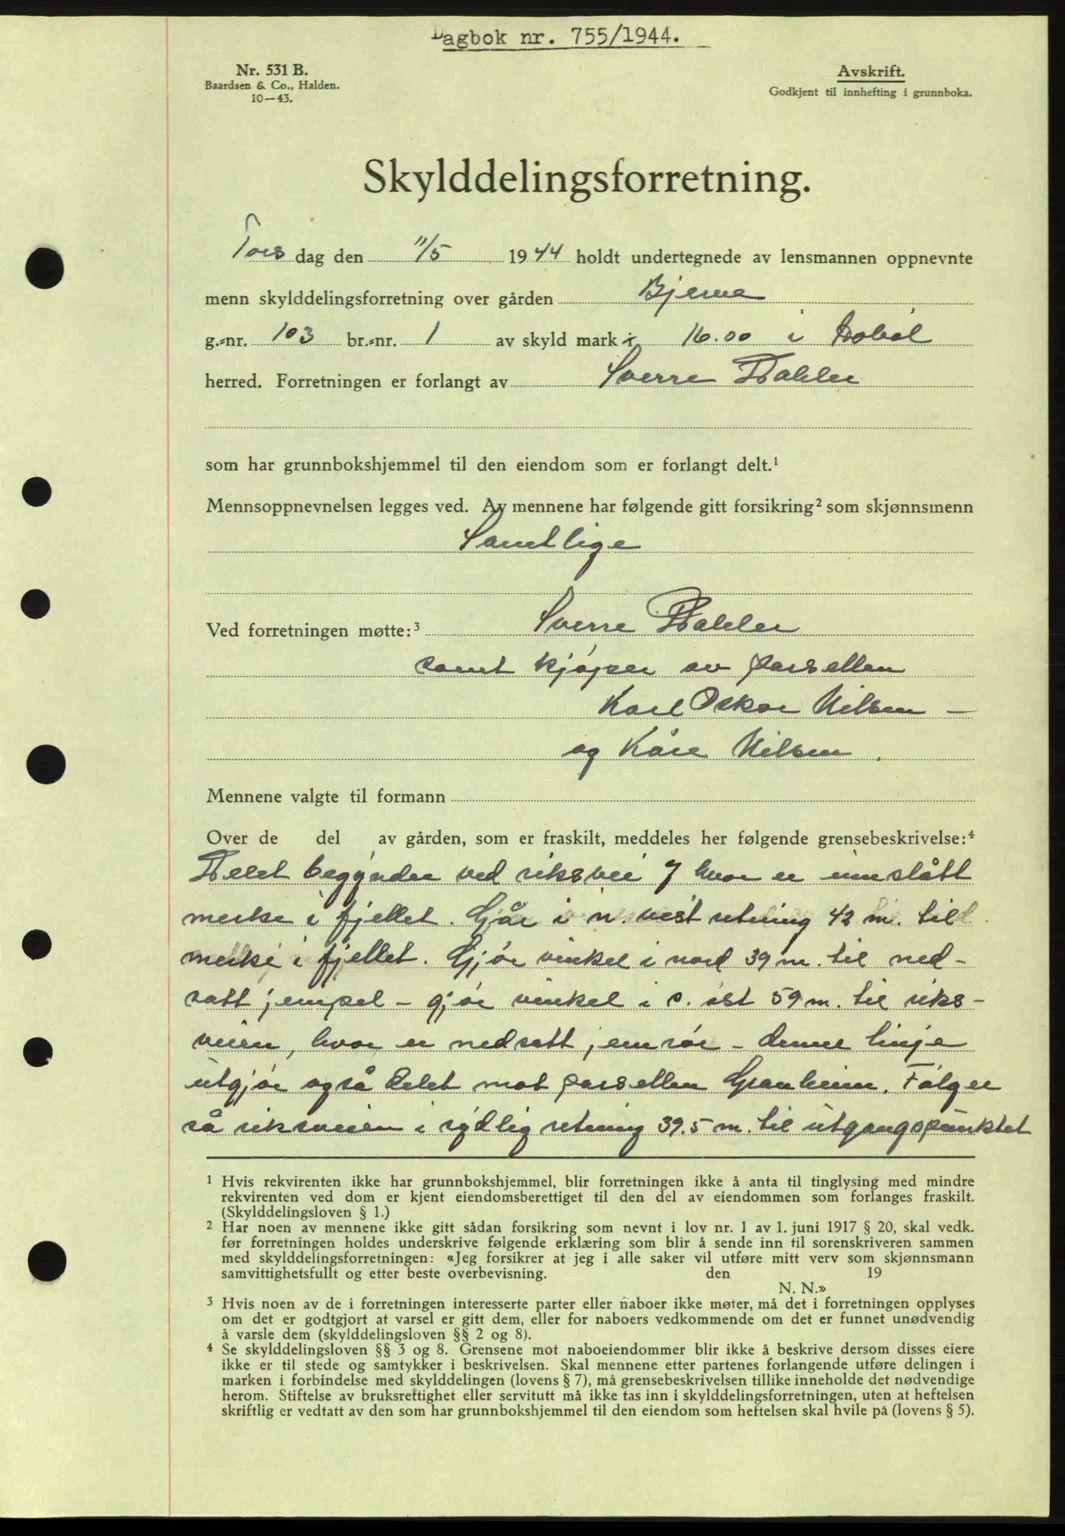 Dagbok nr. 755/1944.
Nr. 531 B.
Baardsen & Co., Halden.
10—43.
Avskrift.
Godkjent til innhefting i grunnboka.
Skylddelingsforretning.
Tors dag den 11/5 1944 holdt undertegnede av lensmannen oppnevnte
menn skylddelingsforretning over gården Bjerne
g.-nr. 103 br.-nr. 1 av skyld mark 16.00 i Hobøl
herred. Forretningen er forlangt av Sverre Dahler
som har grunnbokshjemmel til den eiendom som er forlangt delt.¹
Mennsoppnevnelsen legges ved. Av mennene har følgende gitt forsikring² som skjønnsmenn
Samtlige
Ved forretningen møtte:³ Sverre Dahler
samt kjøper av parsellen
Karl Oskar Nilsen —
og Kåre Nilsen.
Mennene valgte til formann
Over de del av gården, som er fraskilt, meddeles her følgende grensebeskrivelse:⁴
Delet begynder ved riksvei 7 hvor er innslått
merke i fjellet. Går i n. vest retning 42 m. til
merke i fjellet. Gjør vinkel i nord 39 m. til ned-
satt jernpel - gjør vinkel i s. øst 59 m. til riks-
veien, hvor er nedsatt jernrør - denne linje
utgjør også delet mot parsellen Granheim. Følger
så riksveien i sydlig retning 39.5 m. til utgangspunktet
¹ Hvis rekvirenten ikke har grunnbokshjemmel, blir forretningen ikke å anta til tinglysing med mindre
rekvirenten ved dom er kjent eiendomsberettiget til den del av eiendommen som forlanges fraskilt.
(Skylddelingsloven § 1.)
² Har noen av mennene ikke gitt sådan forsikring som nevnt i lov nr. 1 av 1. juni 1917 § 20, skal vedk.
før forretningen holdes underskrive følgende erklæring som blir å sende inn til sorenskriveren sammen
med skylddelingsforretningen: «Jeg forsikrer at jeg i alle saker vil utføre mitt verv som skjønnsmann
samvittighetsfullt og etter beste overbevisning. den 19
N. N.»
³ Hvis noen av de i forretningen interesserte parter eller naboer ikke møter, må det i forretningen opplyses
om det er godtgjort at varsel er gitt dem, eller for naboers vedkommende om det er funnet unødvendig
å varsle dem (skylddelingsloven §§ 2 og 8).
⁴ Se skylddelingsloven §§ 3 og 8. Grensene mot naboeiendommer blir ikke å beskrive dersom disses eiere
ikke er til stede og samtykker i beskrivelsen. Skal mennene etter partenes forlangende utføre delingen i
marken i forbindelse med skylddelingen (lovens § 7), må grensebeskrivelsen tillike inneholde det nødvendige
herom. Stiftelse av bruksrettighet eller servitutt må ikke tas inn i skylddelingsforretningen, uten at heftelsen
skriftlig er vedtatt av den som har grunnbokshjemmel til den eiendom som heftelsen skal hvile på (lovens § 5).